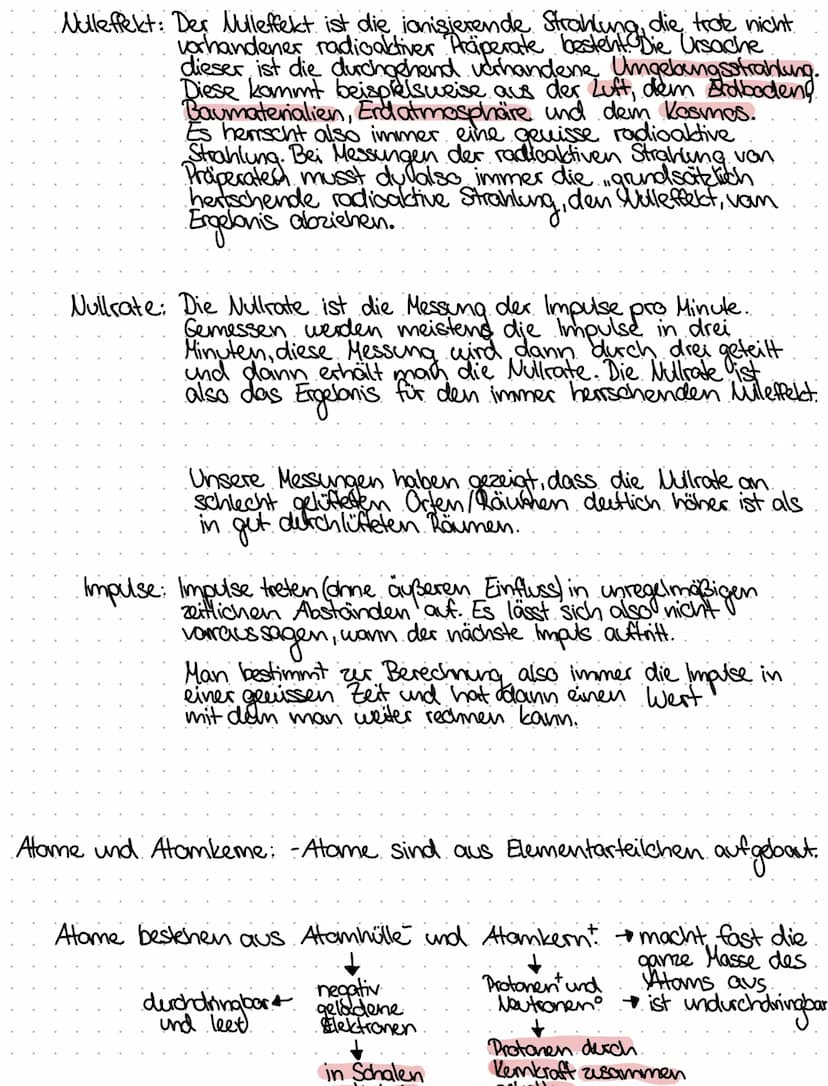 Nulleffekt: Der Nulleffekt ist die ionisierende Strahlung, die trotz nicht
vorhandener radioaktiver Präperate besteht. Die Ursache
dieser ist die durchgehend vorhandene Umgebungsstrahlung.
Diese kommt beispielsweise aus der Luft, dem Erdboden,
Baumaterialien, Erdatmosphäre und dem Kosmos.
Es herrscht also immer eine gewisse radioaktive
Strahlung. Bei Messungen der radioaktiven Strahlung von
Präperaten musst du also immer die „grundsätzlich
herrschende radioaktive Strahlung, den Nulleffekt, vom
Ergebnis abziehen.
Nullrate: Die Nullrate ist die Messung der Impulse pro Minute.
Gemessen werden meistens die Impulse in drei
Minuten, diese Messung wird dann durch drei geteilt
und dann erhält man die Nullrate. Die Nullrate ist
also das Ergebnis für den immer herrschenden Nulleffekt.
Unsere Messungen haben gezeigt, dass die Nullrate an
schlecht gelüfteten Orten/Räumen deutlich höher ist als
in gut durchlüfteten Räumen.
Impulse: Impulse treten (ohne äußeren Einfluss) in unregelmäßigen
zeitlichen Abständen auf. Es lässt sich also nicht
vorraussagen, wann der nächste Impuls auftritt.
Man bestimmt zur Berechnung also immer die Impulse in
einer gewissen Zeit und hat dann einen Wert
mit dem man weiter rechnen kann.
Atome und Atomkerne: - Atome sind aus Elementarteilchen aufgebaut.
Atome bestehen aus Atomhülle⁻ und Atomkern⁺ → macht fast die
ganze Masse des
Atoms aus
→ ist undurchdringbar
durchdringbar ←
und leer
↓
negativ
geladene
Elektronen
↓
in Schalen
↓
Protonen⁺ und
Neutronen⁰
↓
Protonen durch
Kernkraft zusammen